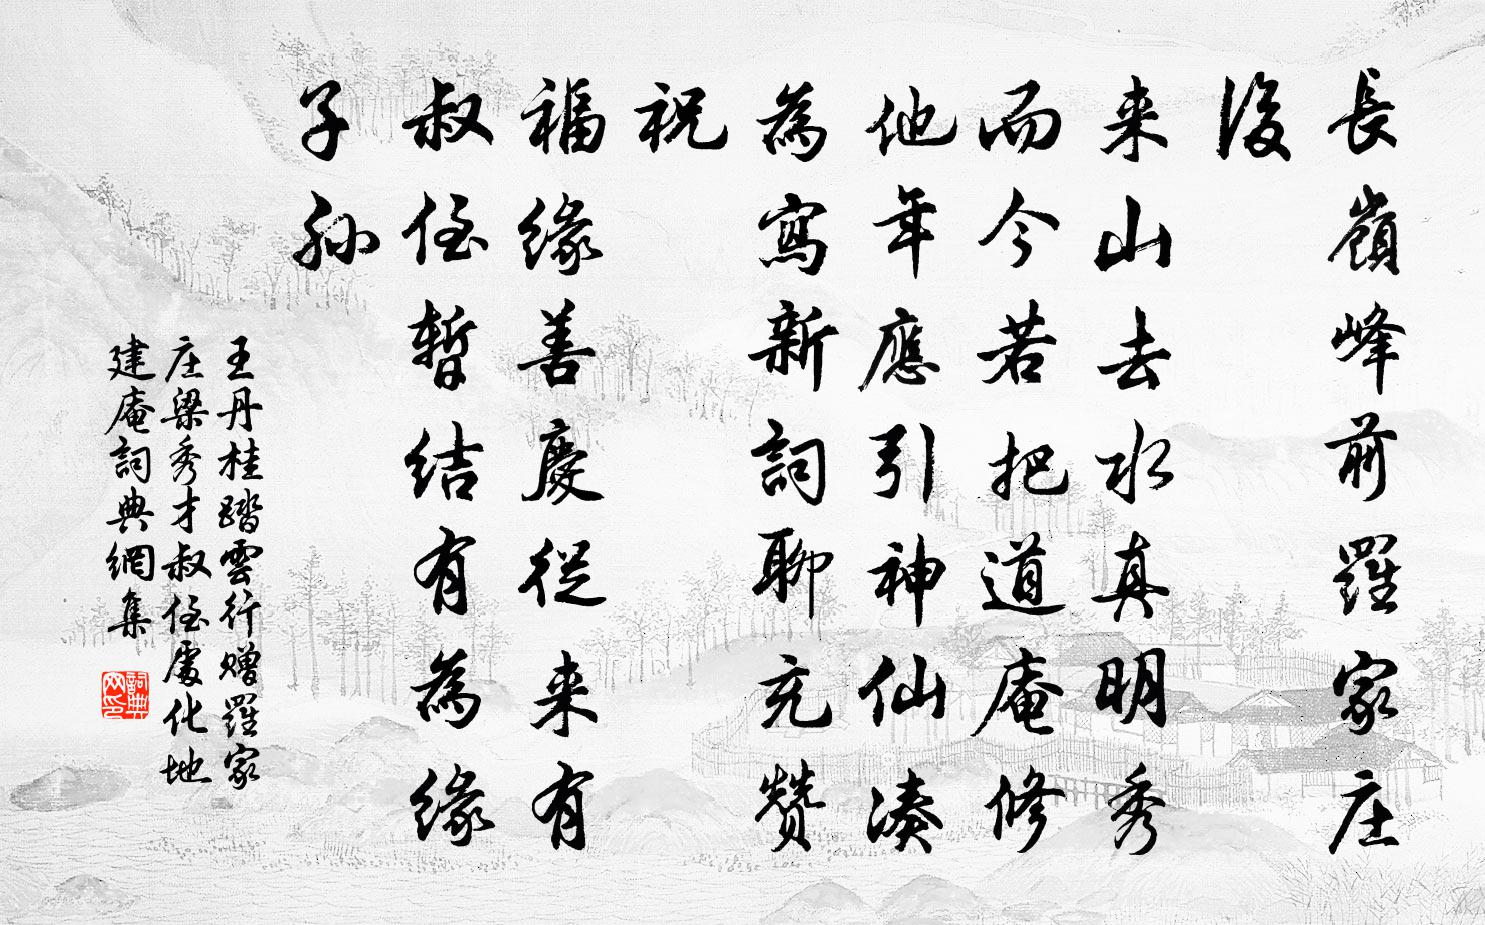 長嶺峰前羅家庄
後
来山去水真明秀
而今若把道庵修
他年應引神仙湊
為寫新詞聊充贊
祝
福緣善慶從来有
叔侄暫結有為緣
子孫
王丹桂踏雲行赠羅家
庄梁秀才叔侄處化地
建庵詞典網集
詞典
网印